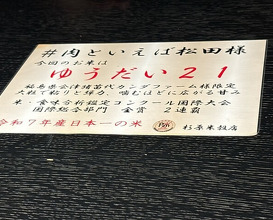 #肉といえば松田様
今回のお米は
ゆうだい21
福島県会津猪苗代カンダファーム様限定
大粒で粘りと弾力、噛むほどに広がる甘み
米・食味分析鑑定コンクール国際大会
国際総合部門 金賞 2連覇
令和7年産日本一の米
杉原米穀店